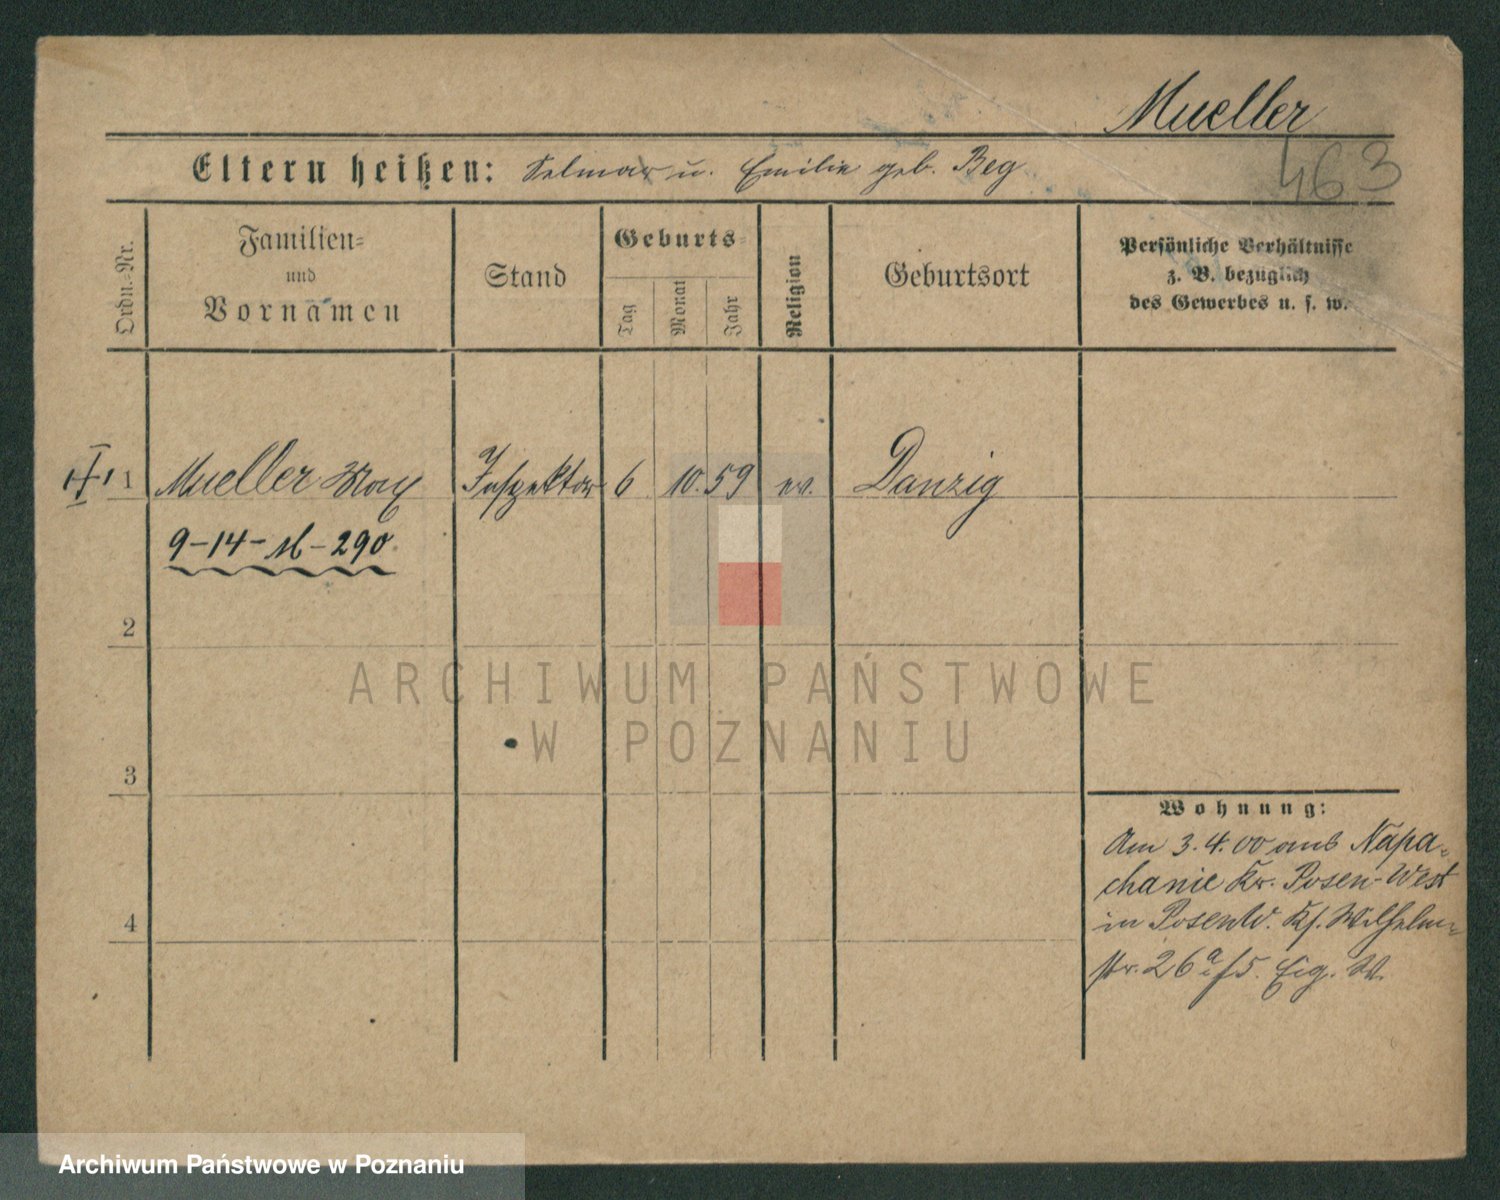 Mueller
463
Eltern heißen: Selmar u. Emilie geb. Beg
Ordn.=Nr.
Familien=
und
Vornamen
Stand
Geburts=
Tag
Monat
Jahr
Religion
Geburtsort
Persönliche Verhältnisse
z. B. bezüglich
des Gewerbes u. s. w.
1 Mueller Max Inspektor 6 10. 59 ev. Danzig
9-14-16-290.
2
ARCHIWUM PAŃSTWOWE
W POZNANIU
3
Wohnung:
Am 3.4.00 aus Napa=
chanie Kr. Posen-West
in Posen W. Kf. Wilhelm=
str. 26a f 5. Eig. W.
4
Archiwum Państwowe w Poznaniu